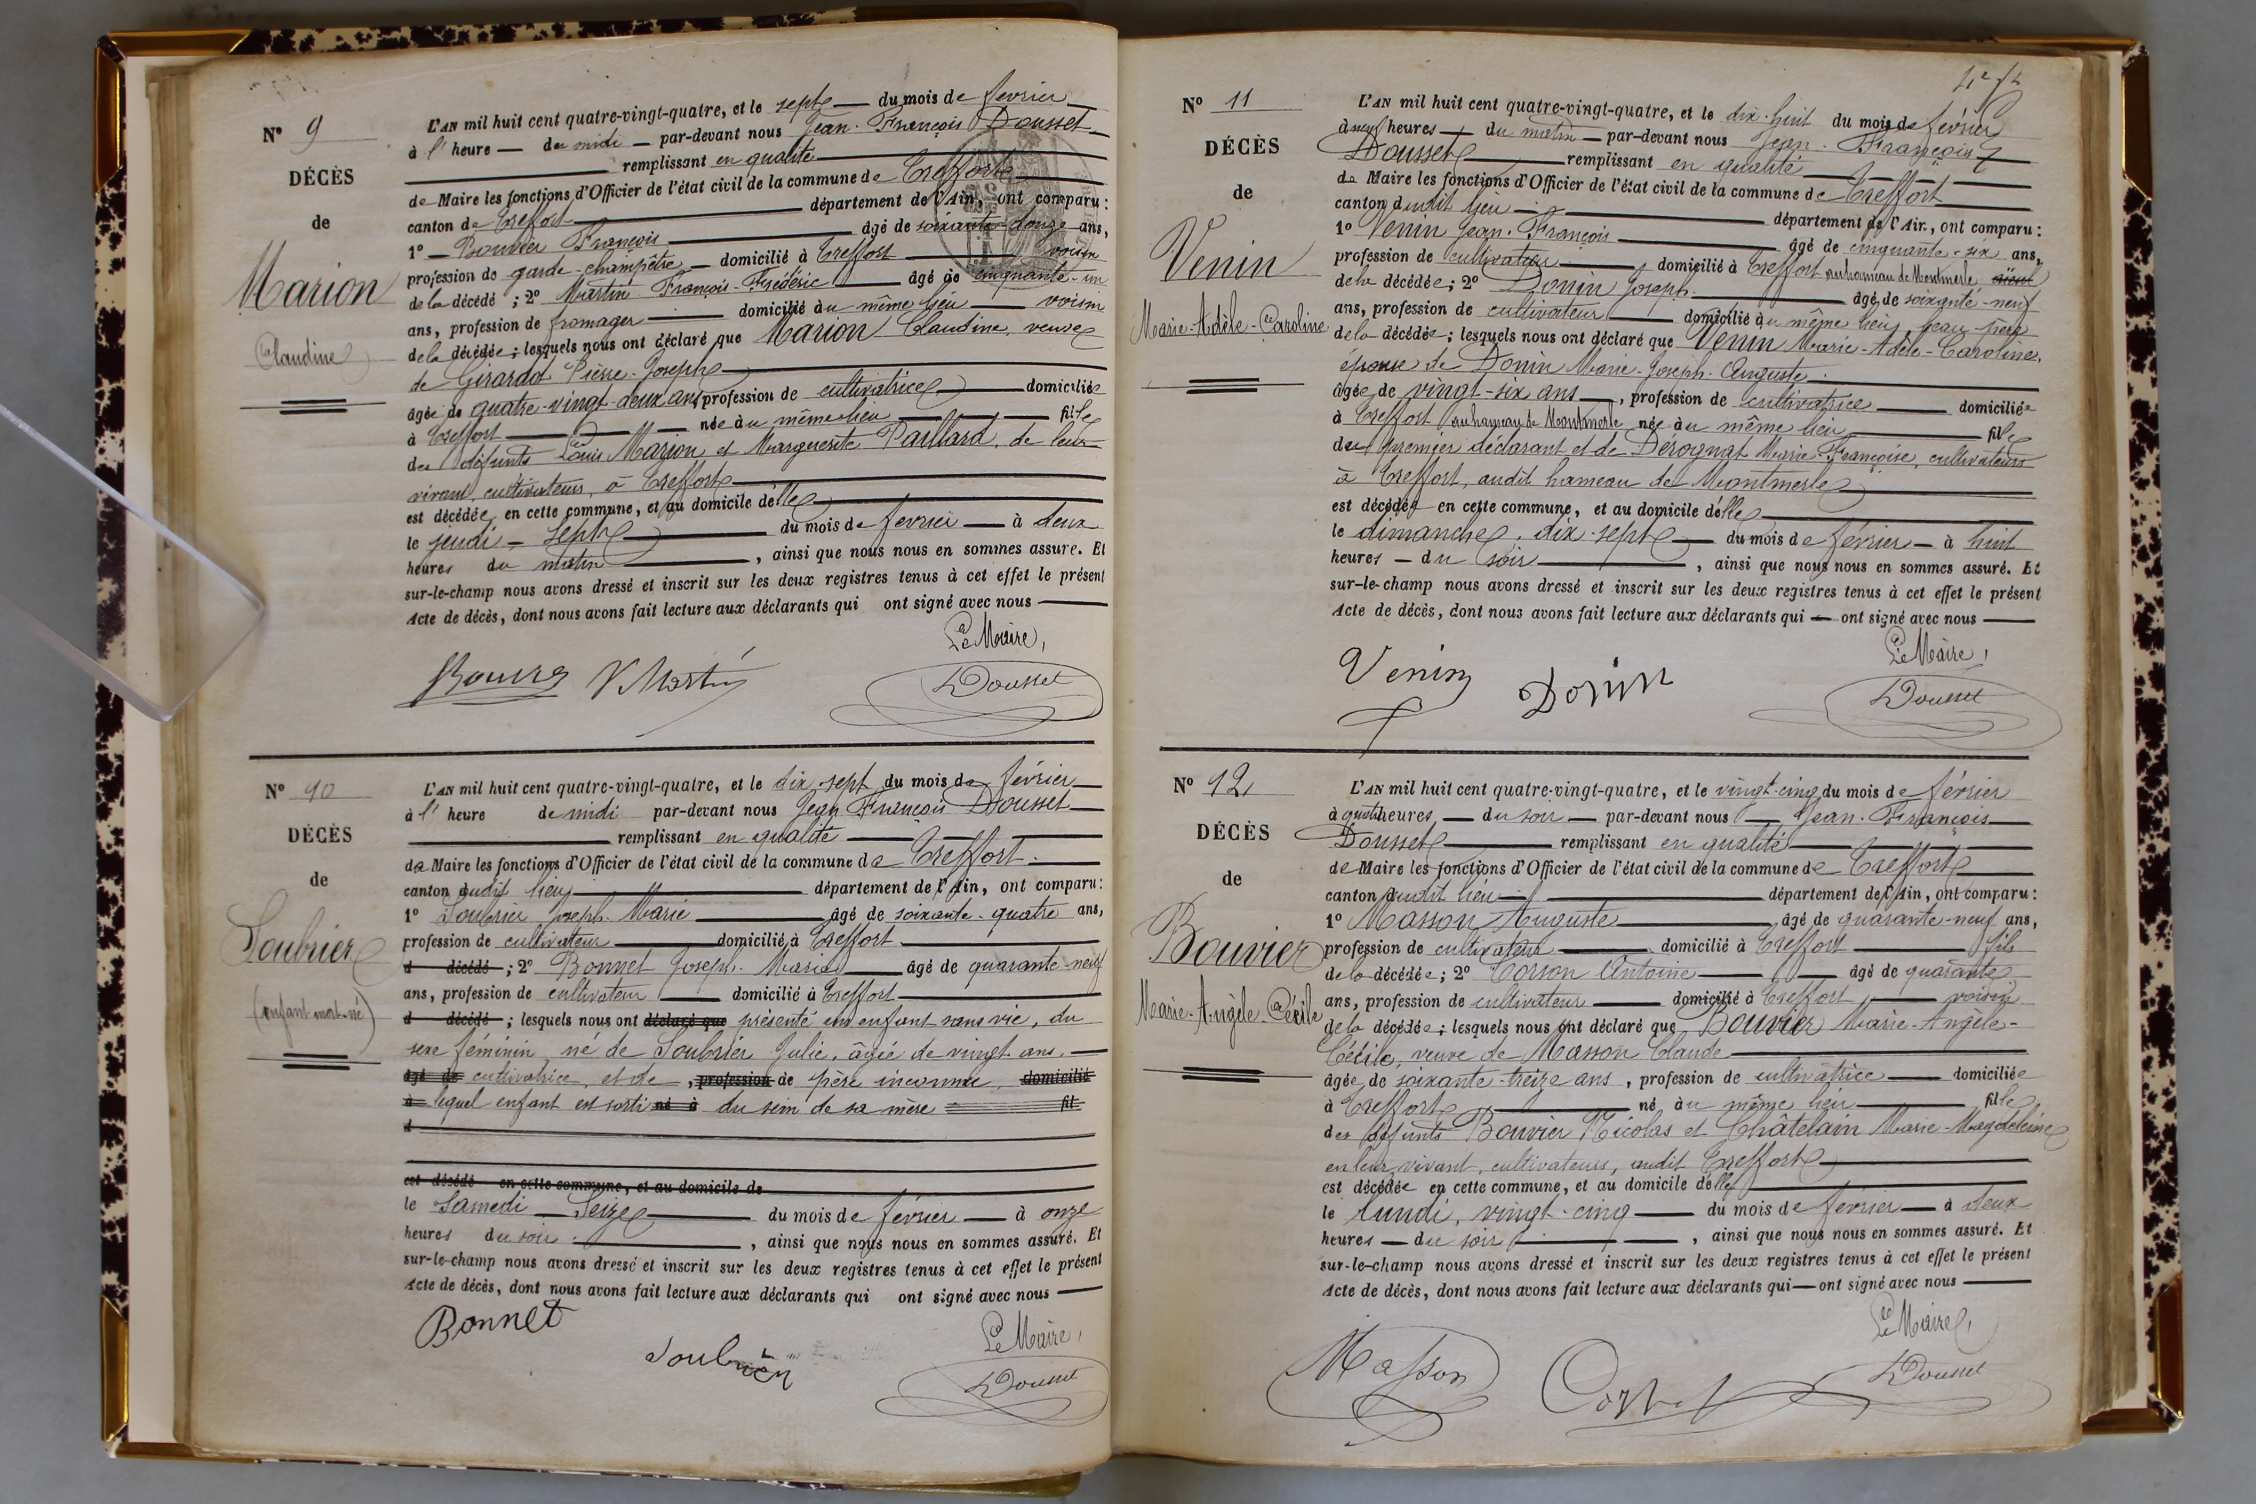 N° 9
DÉCÈS
de
Marion
Claudine
L'AN mil huit cent quatre-vingt-quatre, et le sept du mois de février
à l'heure de midi par-devant nous Jean-François Dousset
remplissant en qualité
de Maire les fonctions d'Officier de l'état civil de la commune de Treffort
canton de Treffort département de l'Ain, ont comparu:
1° Bouvier François âgé de soixante-douze ans,
profession de garde-champêtre domicilié à Treffort voisin
de la décédé ; 2° Martin François-Frédéric âgé de cinquante-un
ans, profession de fromager domicilié au même lieu voisin
de la décédée ; lesquels nous ont déclaré que Marion Claudine, veuve
de Girardot Pierre-Joseph
âgée de quatre-vingt-deux ans, profession de cultivatrice domiciliée
à Treffort née au même lieu fille
des défunts Louis Marion et Marguerite Paillard, de leur
vivant, cultivateurs, à Treffort
est décédée, en cette commune, et au domicile d'elle
le jeudi sept du mois de février à deux
heures du matin , ainsi que nous nous en sommes assuré. Et
sur-le-champ nous avons dressé et inscrit sur les deux registres tenus à cet effet le présent
Acte de décès, dont nous avons fait lecture aux déclarants qui ont signé avec nous
Le Maire,
Martin
Dousset
N° 10
DÉCÈS
de
Soubrier
(enfant mort-né)
L'AN mil huit cent quatre-vingt-quatre, et le dix-sept du mois de février
à l'heure de midi par-devant nous Jean François Dousset
remplissant en qualité
de Maire les fonctions d'Officier de l'état civil de la commune de Treffort
canton dudit lieu département de l'Ain, ont comparu:
1° Soubrier Joseph-Marie âgé de soixante-quatre ans,
profession de cultivateur domicilié à Treffort
d décédé ; 2° Bonnet Joseph-Marie âgé de quarante-neuf
ans, profession de cultivateur domicilié à Treffort
d décédé ; lesquels nous ont déclaré que présenté un enfant sans vie, du
sexe féminin né de Soubrier Julie, âgée de vingt ans,
âgé de cultivatrice, et de , profession de père inconnu, domicilié
à lequel enfant est sorti né à du sein de sa mère fil
d
est décédé en cette commune, et au domicile de
le Samedi Seize du mois de février à onze
heures du soir , ainsi que nous nous en sommes assuré. Et
sur-le-champ nous avons dressé et inscrit sur les deux registres tenus à cet effet le présent
Acte de décès, dont nous avons fait lecture aux déclarants qui ont signé avec nous
Bonnet
Soubrier
Le Maire,
Dousset
N° 11
DÉCÈS
de
Venin
Marie-Adèle-Caroline
L'AN mil huit cent quatre-vingt-quatre, et le dix-huit du mois de février
à neuf heures du matin par-devant nous Jean-François
Dousset remplissant en qualité
de Maire les fonctions d'Officier de l'état civil de la commune de Treffort
canton dudit lieu département de l'Ain, ont comparu:
1° Venin Jean-François âgé de cinquante-six ans,
profession de cultivateur domicilié à Treffort au hameau de Montmerle
de la décédée ; 2° Donin Joseph âgé de soixante-neuf
ans, profession de cultivateur domicilié au même lieu, beau-père
de la décédée ; lesquels nous ont déclaré que Venin Marie-Adèle-Caroline,
épouse de Donin Marie-Joseph-Auguste
âgée de vingt-six ans, profession de cultivatrice domiciliée
à Treffort au hameau de Montmerle née au même lieu fille
du premier déclarant et de Dérognat Marie-Françoise, cultivateurs
à Treffort, audit hameau de Montmerle
est décédée en cette commune, et au domicile d'elle
le dimanche, dix-sept du mois de février à huit
heures du soir , ainsi que nous nous en sommes assuré. Et
sur-le-champ nous avons dressé et inscrit sur les deux registres tenus à cet effet le présent
Acte de décès, dont nous avons fait lecture aux déclarants qui ont signé avec nous
Le Maire,
Venin
Donin
Dousset
N° 12
DÉCÈS
de
Bouvier
Marie-Angèle-Cécile
L'AN mil huit cent quatre-vingt-quatre, et le vingt-cinq du mois de février
à quatre heures, du soir par-devant nous Jean-François
Dousset remplissant en qualité
de Maire les fonctions d'Officier de l'état civil de la commune de Treffort
canton dudit lieu département de l'Ain, ont comparu:
1° Masson Auguste âgé de quarante-neuf ans,
profession de cultivateur domicilié à Treffort fils
de la décédée ; 2° Antoine âgé de quarante
ans, profession de cultivateur domicilié à Treffort voisin
de la décédée ; lesquels nous ont déclaré que Bouvier Marie-Angèle-
Cécile, veuve de Masson Claude
âgée de soixante-treize ans, profession de cultivatrice domiciliée
à Treffort né au même lieu fille
des défunts Bouvier Nicolas et Châtelain Marie-Magdeleine
en leur vivant, cultivateurs, audit Treffort
est décédée en cette commune, et au domicile d'elle
le lundi, vingt-cinq du mois de février à deux
heures du soir , ainsi que nous nous en sommes assuré. Et
sur-le-champ nous avons dressé et inscrit sur les deux registres tenus à cet effet le présent
Acte de décès, dont nous avons fait lecture aux déclarants qui ont signé avec nous
Le Maire,
Masson
Dousset